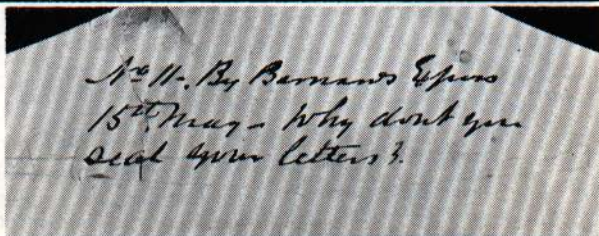 No 11. By Barnard's Express
15th May - Why dont you
seal your letters?